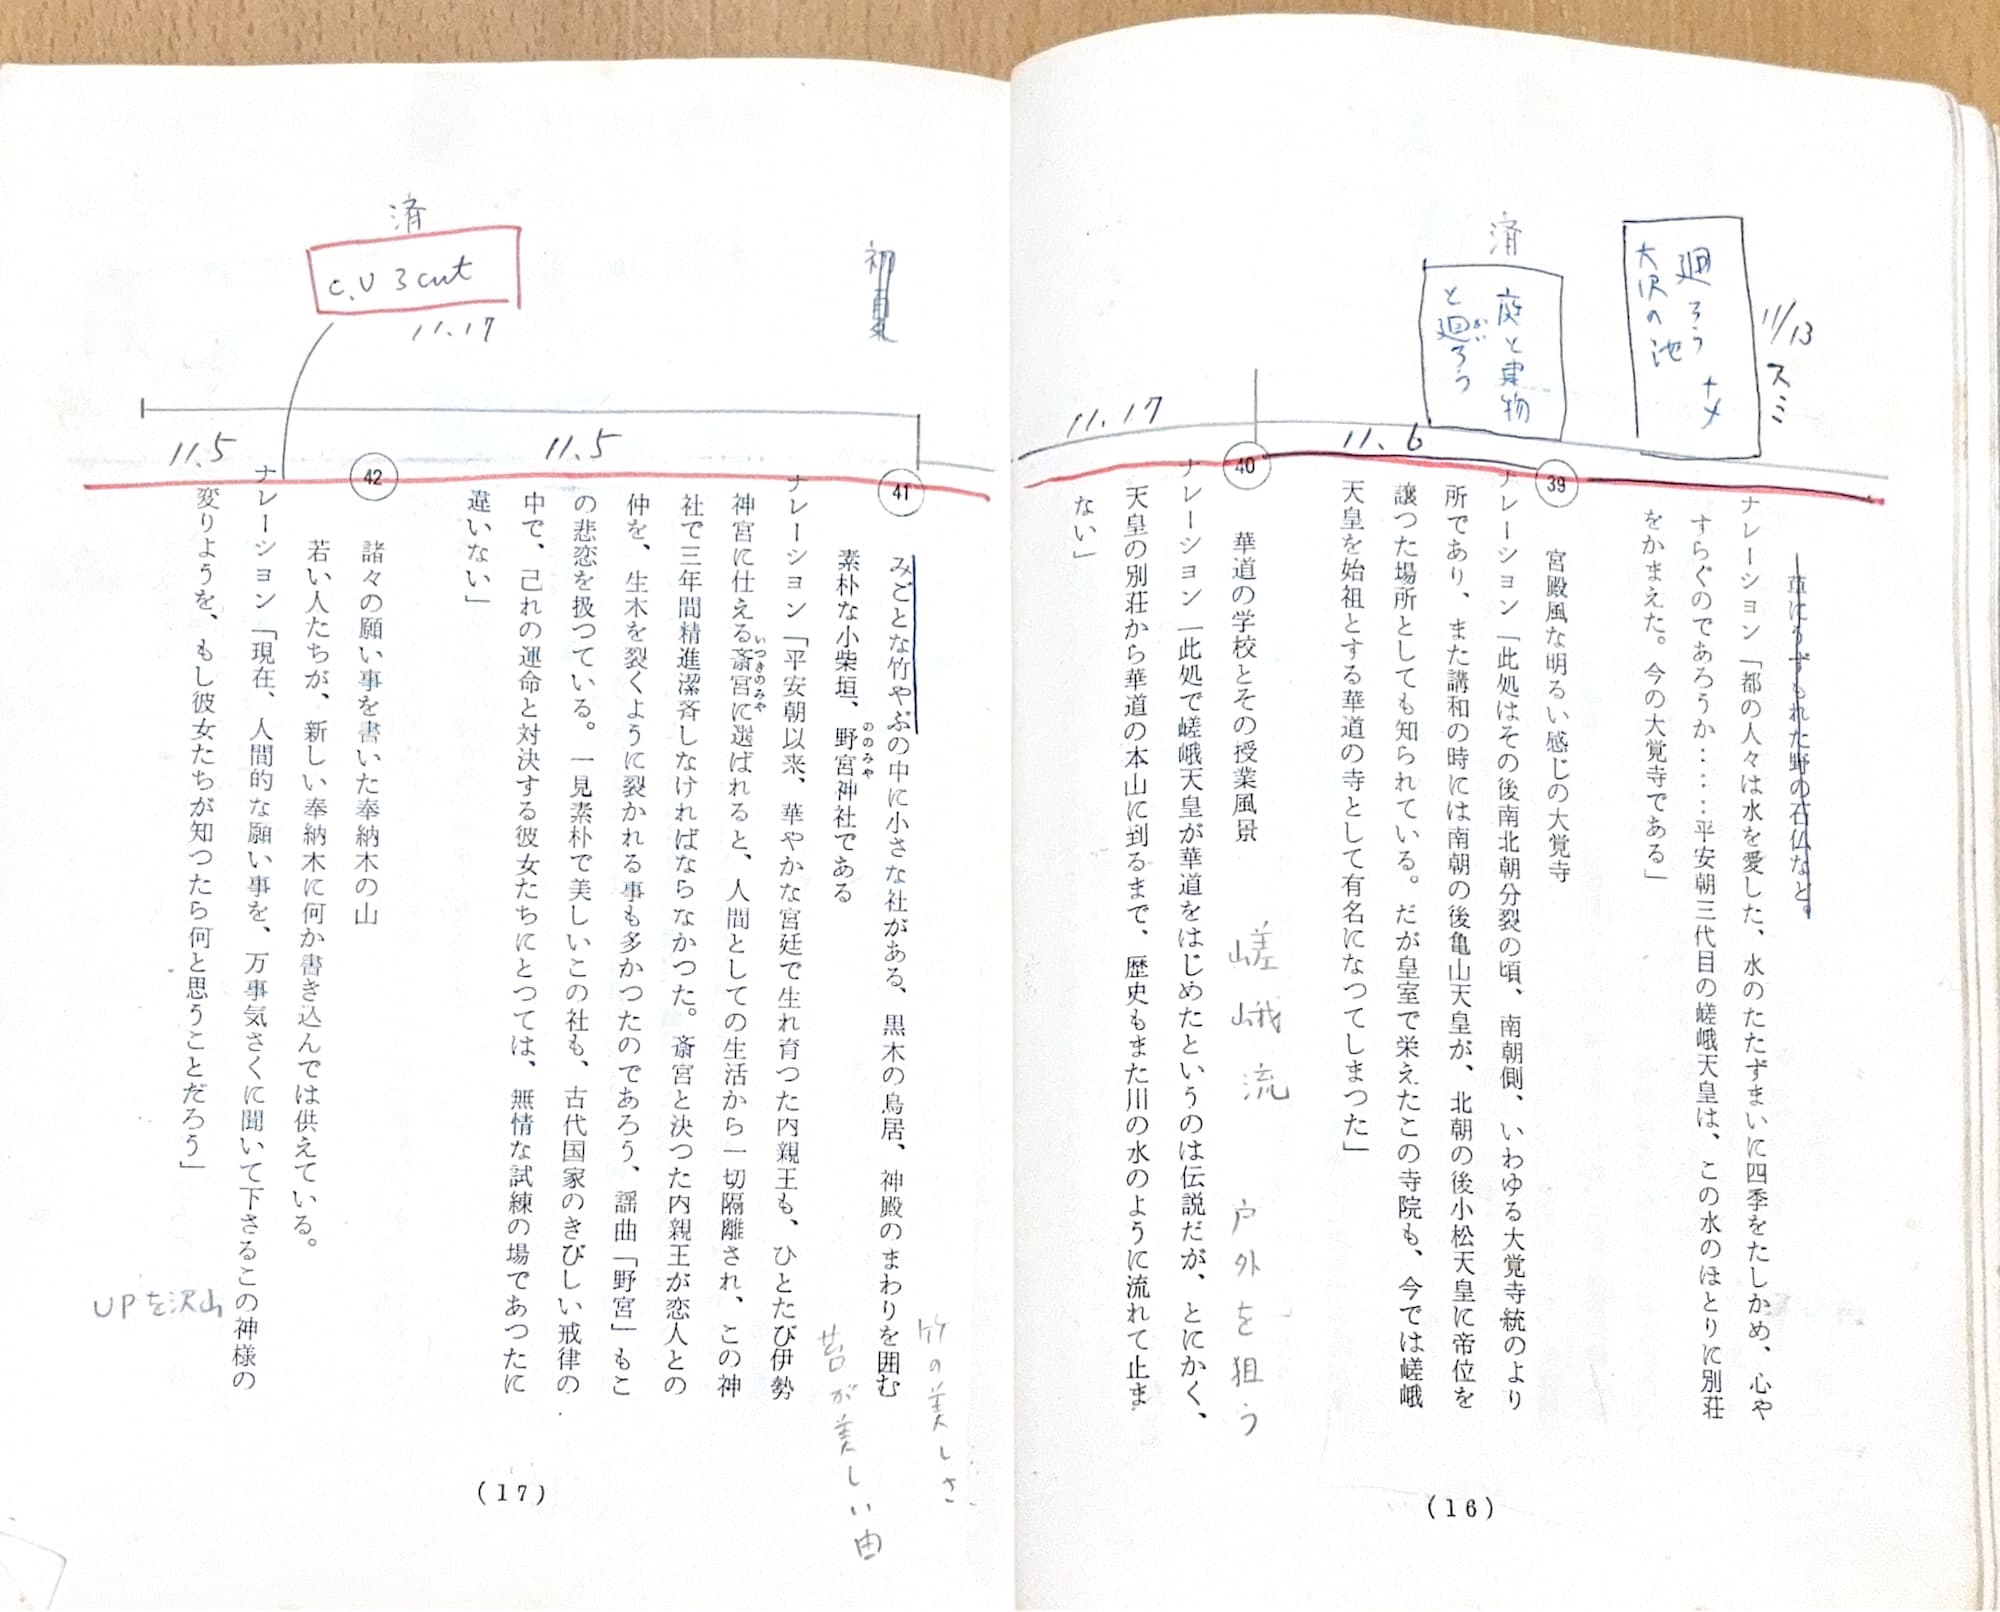 11/13 スミ
廻ろう ナメ
大沢の池
草にうずもれた野の石仏など。
ナレーション「都の人々は水を愛した、水のたたずまいに四季をたしかめ、心や
すらぐのであろうか‥‥平安朝三代目の嵯峨天皇は、この水のほとりに別荘
をかまえた。今の大覚寺である」
済
庭と建物
と廻ろう
かい
11.6
39
宮殿風な明るい感じの大覚寺
ナレーション「此処はその後南北朝分裂の頃、南朝側、いわゆる大覚寺統のより
所であり、また講和の時には南朝の後亀山天皇が、北朝の後小松天皇に帝位を
譲つた場所としても知られている。だが皇室で栄えたこの寺院も、今では嵯峨
天皇を始祖とする華道の寺として有名になつてしまつた」
11.17
40
華道の学校とその授業風景
嵯峨流 戸外を狙う
ナレーション「此処で嵯峨天皇が華道をはじめたというのは伝説だが、とにかく、
天皇の別荘から華道の本山に到るまで、歴史もまた川の水のように流れて止ま
ない」
(16)
初夏
41
みごとな竹やぶの中に小さな社がある、黒木の鳥居、神殿のまわりを囲む
竹の美しさ
素朴な小柴垣、野宮神社である
ののみや
苔が美しい由
11.5
ナレーション「平安朝以来、華やかな宮廷で生れ育つた内親王も、ひとたび伊勢
神宮に仕える斎宮に選ばれると、人間としての生活から一切隔離され、この神
いつきのみや
社で三年間精進潔斎しなければならなかつた。斎宮と決つた内親王が恋人との
仲を、生木を裂くように裂かれる事も多かつたのであろう、謡曲「野宮」もこ
の悲恋を扱つている。一見素朴で美しいこの社も、古代国家のきびしい戒律の
中で、己れの運命と対決する彼女たちにとつては、無情な試練の場であつたに
違いない」
済
C.U 3cut
11.17
42
諸々の願い事を書いた奉納木の山
若い人たちが、新しい奉納木に何か書き込んでは供えている。
11.5
ナレーション「現在、人間的な願い事を、万事気さくに聞いて下さるこの神様の
変りようを、もし彼女たちが知つたら何と思うことだろう」
UPを沢山
(17)